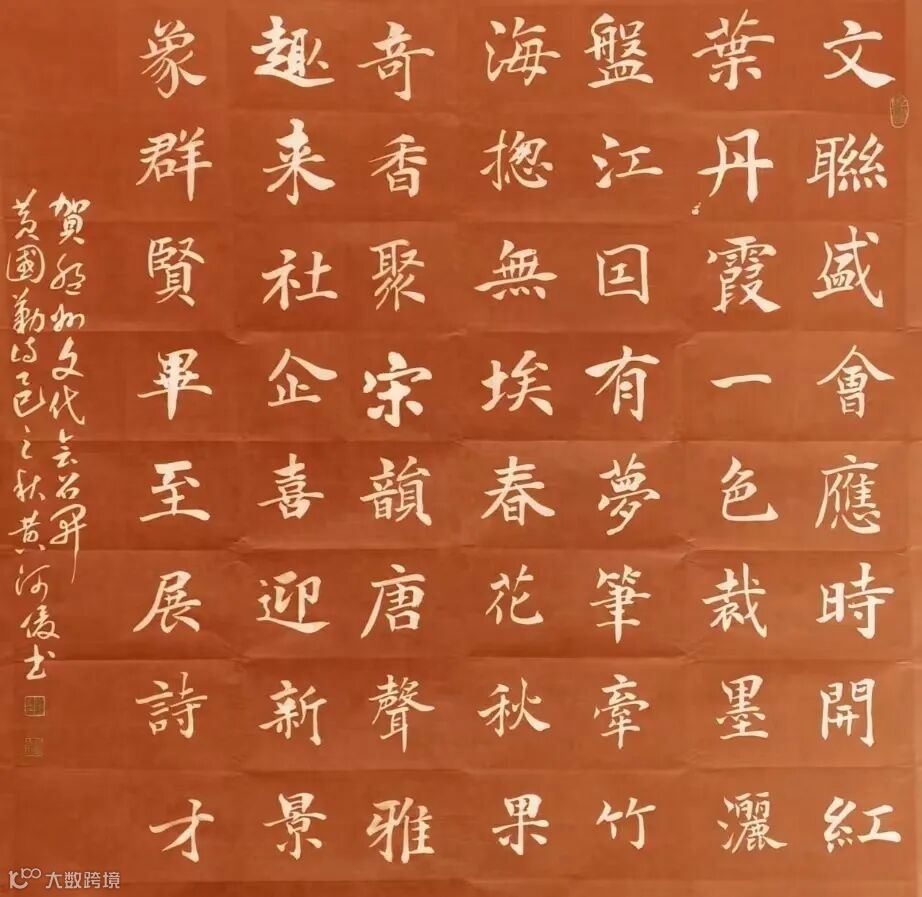 文聯盛會應時開紅
葉丹霞一色裁墨灑
盤江回有夢筆牽竹
海揔無埃春花秋果
奇香聚宋韻唐聲雅
趣来社企喜迎新景
象群賢畢至展詩才
賀 州文代会召開
黄國勤詩乙巳之秋黄河俊书
大数跨境